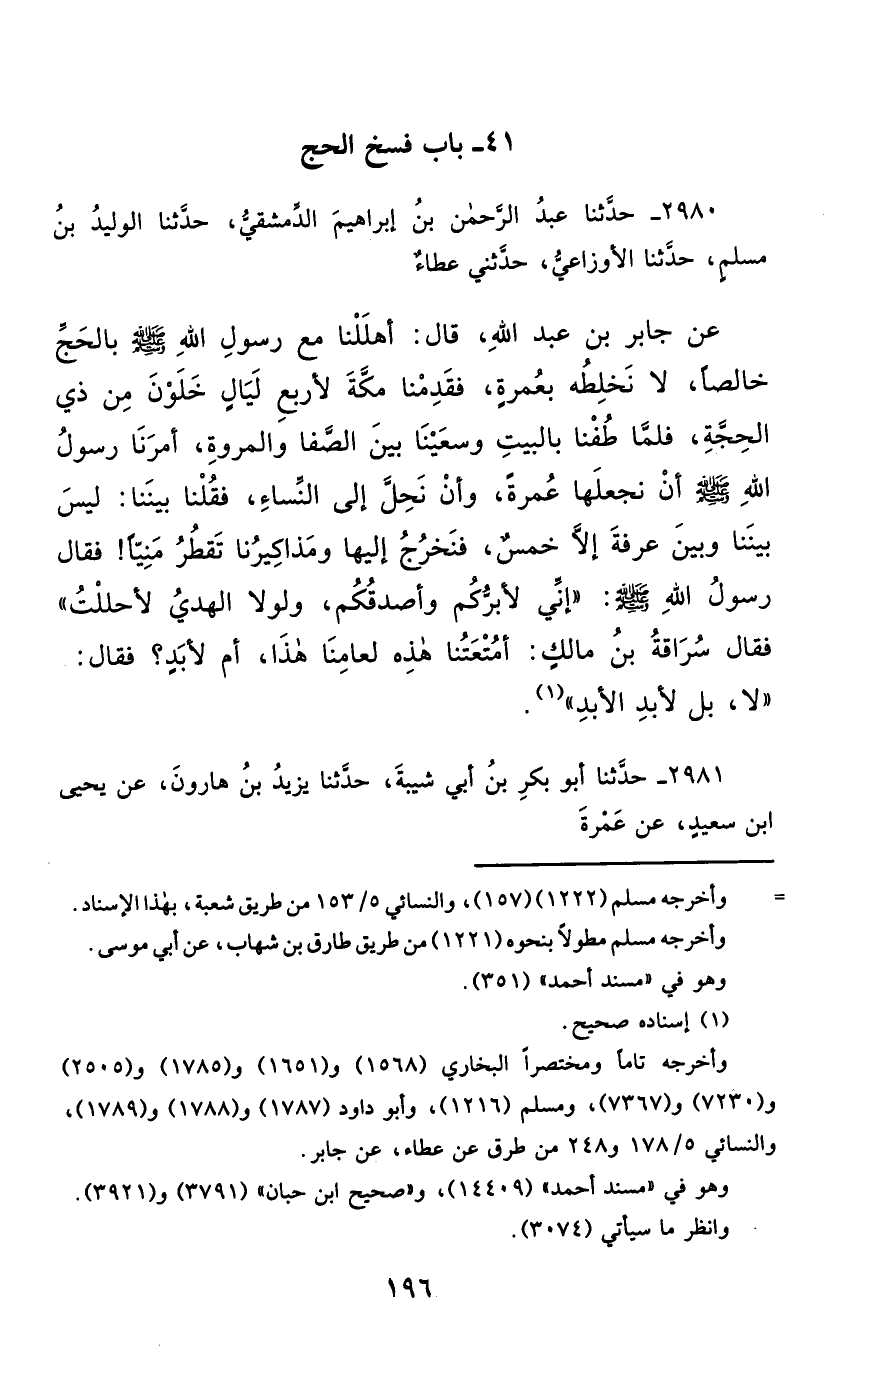 ٤١ـ باب فسخ الحج
٢٩٨٠ـ حدَّثنا عبدُ الرَّحمٰن بنُ إبراهيمَ الدِّمشقيُّ، حدَّثنا الوليدُ بنُ
مسلمٍ، حدَّثنا الأوزاعيُّ، حدَّثني عطاءٌ
عن جابر بن عبد اللهِ، قال: أهلَلْنا مع رسولِ اللهِ ﷺ بالحَجِّ
خالصاً، لا نَخلِطُه بعُمرةٍ، فقَدِمْنا مكَّةَ لأربعِ لَيَالٍ خَلَوْنَ مِن ذي
الحِجَّةِ، فلمَّا طُفْنا بالبيتِ وسعَيْنَا بينَ الصَّفا والمروةِ، أمرَنَا رسولُ
اللهِ ﷺ أنْ نجعلَها عُمرةً، وأنْ نَحِلَّ إلى النِّساءِ، فقُلْنا بينَنا: ليسَ
بينَنا وبينَ عرفةَ إلاَّ خمسٌ، فنَخرُجُ إليها ومَذاكِيرُنا تَقطُرُ مَنِيّاً! فقال
رسولُ اللهِ ﷺ: «إنِّي لأبرُّكُم وأصدقُكُم، ولولا الهديُ لأحللْتُ»
فقال سُرَاقةُ بنُ مالكٍ: أمُتْعَتُنا هٰذِه لعامِنَا هٰذَا، أم لأبَدٍ؟ فقال:
«لا، بل لأبدِ الأبدِ»(١).
٢٩٨١ـ حدَّثنا أبو بكرِ بنُ أبي شيبةَ، حدَّثنا يزيدُ بنُ هارونَ، عن يحيى
ابن سعيدٍ، عن عَمْرةَ
= وأخرجه مسلم (١٢٢٢)(١٥٧)، والنسائي ٥/ ١٥٣ من طريق شعبة، بهٰذا الإسناد.
وأخرجه مسلم مطولاً بنحوه (١٢٢١) من طريق طارق بن شهاب، عن أبي موسى.
وهو في «مسند أحمد» (٣٥١).
(١) إسناده صحيح.
وأخرجه تاماً ومختصراً البخاري (١٥٦٨) و(١٦٥١) و(١٧٨٥) و(٢٥٠٥)
و(٧٢٣٠) و(٧٣٦٧)، ومسلم (١٢١٦)، وأبو داود (١٧٨٧) و(١٧٨٨) و(١٧٨٩)،
والنسائي ٥/ ١٧٨ و٢٤٨ من طرق عن عطاء، عن جابر.
وهو في «مسند أحمد» (١٤٤٠٩)، و«صحيح ابن حبان» (٣٧٩١) و(٣٩٢١).
وانظر ما سيأتي (٣٠٧٤).
١٩٦